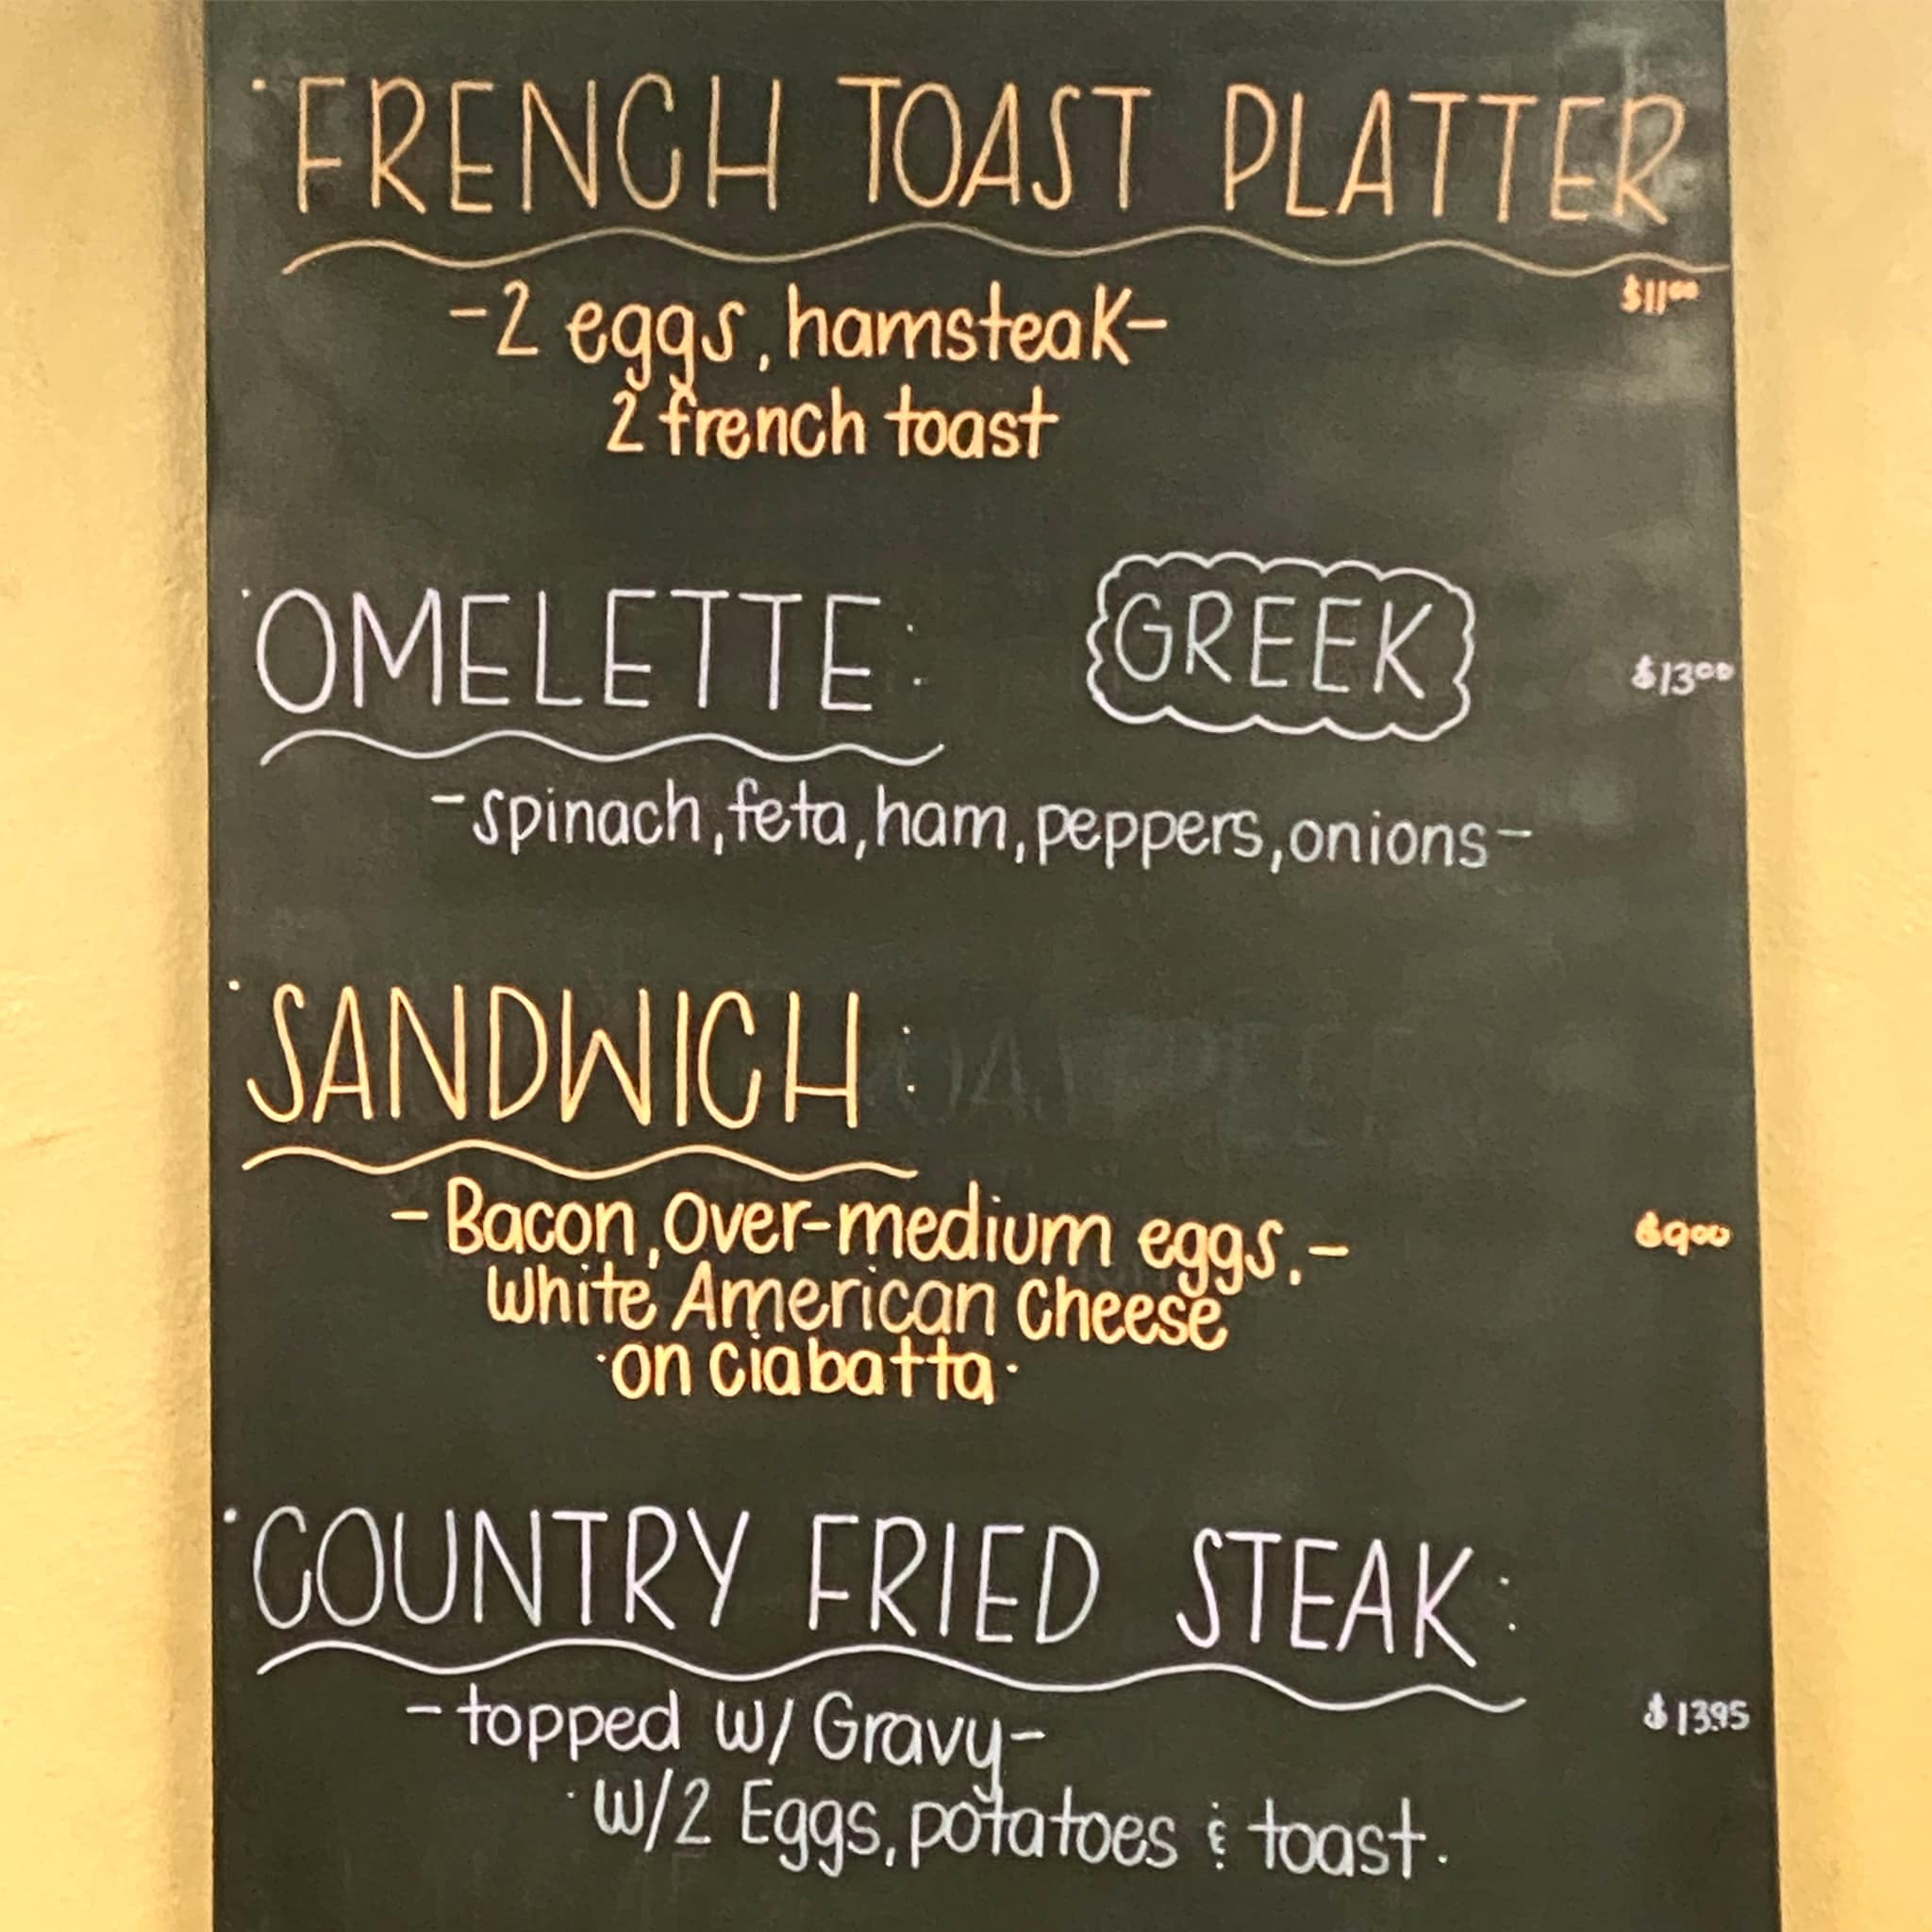 FRENCH TOAST PLATTER
$11.00
-2 eggs, hamsteak-
2 french toast
OMELETTE: GREEK $13.00
-spinach, feta, ham, peppers, onions-
SANDWICH:
-Bacon, Over-medium eggs,- $9.00
White American Cheese
·on ciabatta·
COUNTRY FRIED STEAK:
-topped w/ Gravy- $13.95
·W/2 Eggs, potatoes & toast.